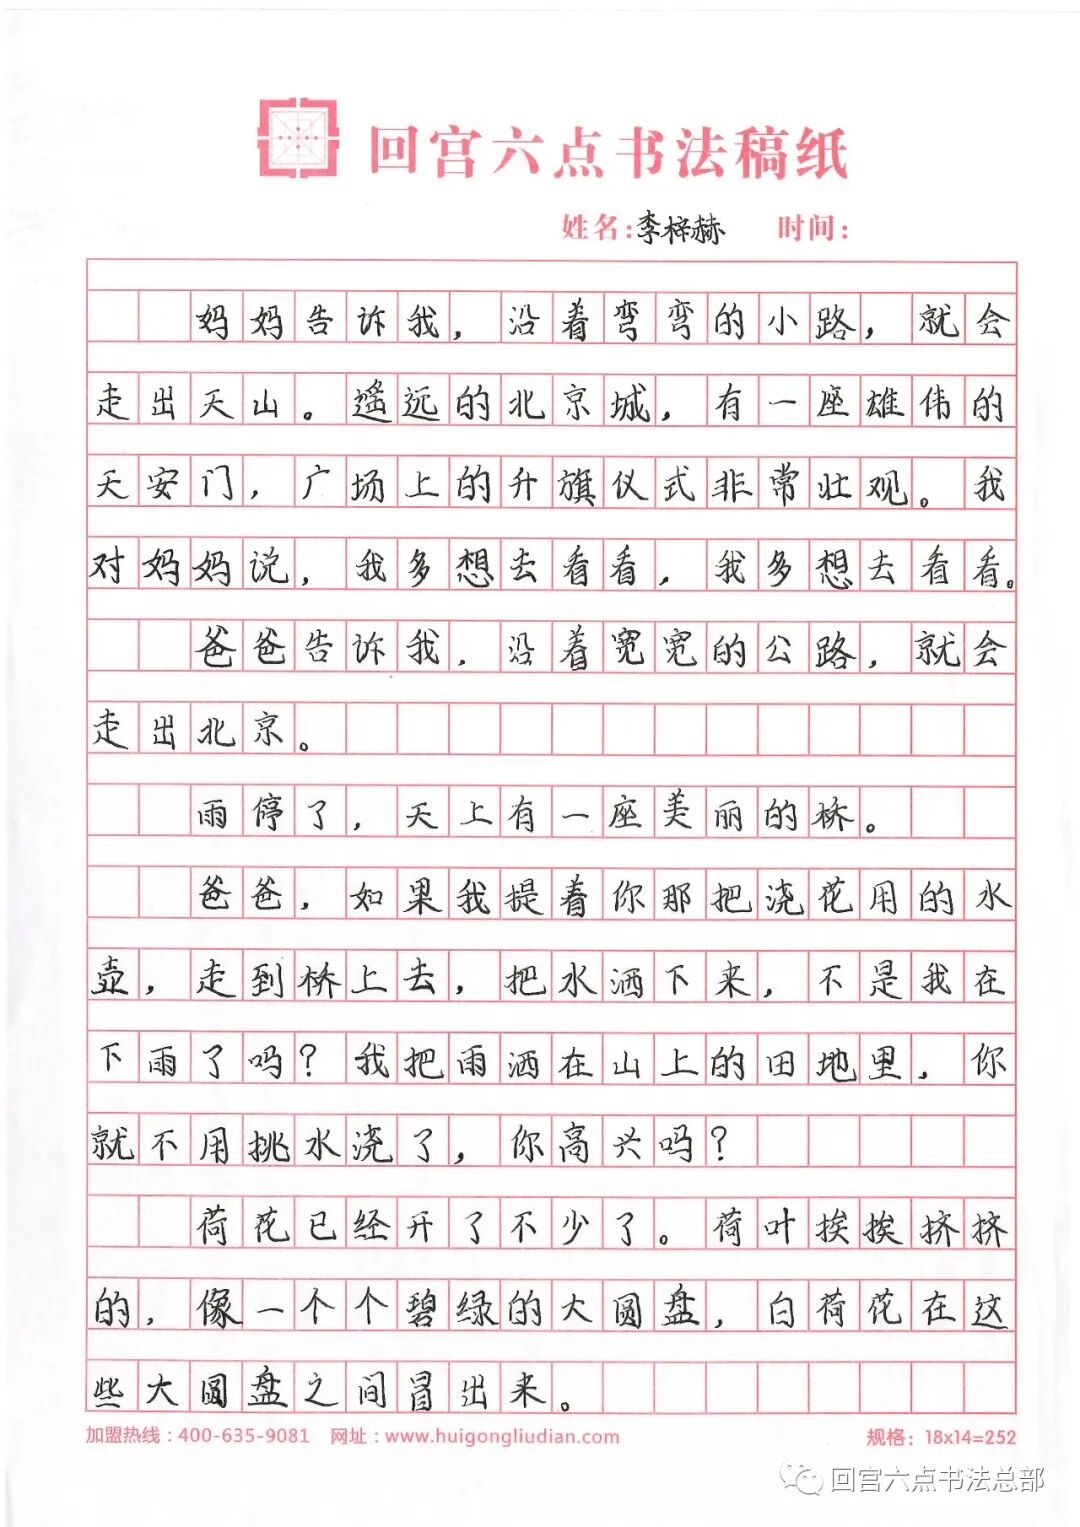 回宫六点书法稿纸
姓名:李梓赫 时间:
妈妈告诉我，沿着弯弯的小路，就会
走出天山。遥远的北京城，有一座雄伟的
天安门，广场上的升旗仪式非常壮观。我
对妈妈说，我多想去看看，我多想去看看。
爸爸告诉我，沿着宽宽的公路，就会
走出北京。
雨停了，天上有一座美丽的桥。
爸爸，如果我提着你那把浇花用的水
壶，走到桥上去，把水洒下来，不是我在
下雨了吗？我把雨洒在山上的田地里，你
就不用挑水浇了，你高兴吗？
荷花已经开了不少了。荷叶挨挨挤挤
的，像一个个碧绿的大圆盘，白荷花在这
些大圆盘之间冒出来。
加盟热线：400-635-9081 网址：www.huigongliudian.com 规格：18x14=252
回宫六点书法总部